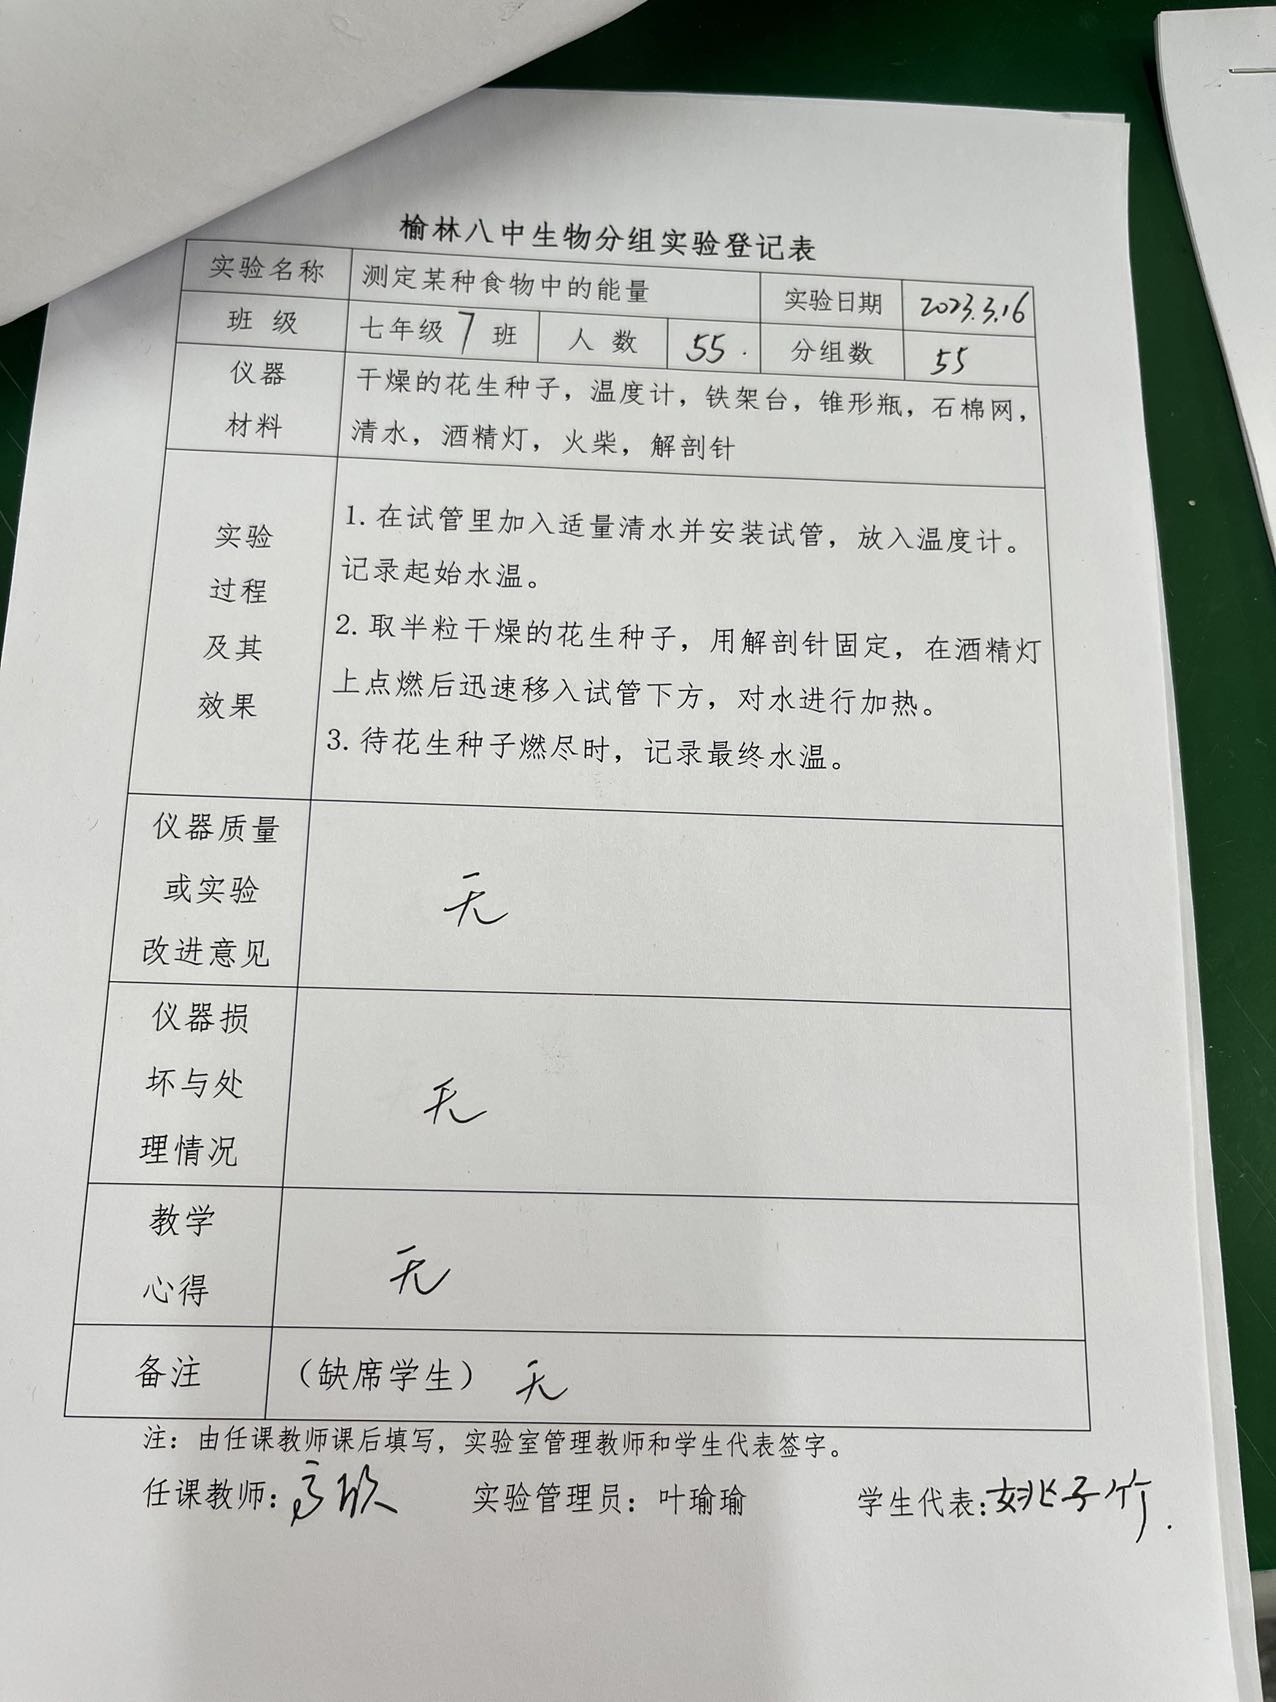 榆林八中生物分组实验登记表
实验名称 测定某种食物中的能量 实验日期 2023.3.16
班 级 七年级 7 班 人 数 55. 分组数 55
仪器
材料
干燥的花生种子，温度计，铁架台，锥形瓶，石棉网，
清水，酒精灯，火柴，解剖针
实验
过程
及其
效果
1. 在试管里加入适量清水并安装试管，放入温度计。
记录起始水温。
2. 取半粒干燥的花生种子，用解剖针固定，在酒精灯
上点燃后迅速移入试管下方，对水进行加热。
3. 待花生种子燃尽时，记录最终水温。
仪器质量
或实验
改进意见
无
仪器损
坏与处
理情况
无
教学
心得
无
备注 （缺席学生） 无
注：由任课教师课后填写，实验室管理教师和学生代表签字。
任课教师：高欣 实验管理员：叶瑜瑜 学生代表：姚子竹.